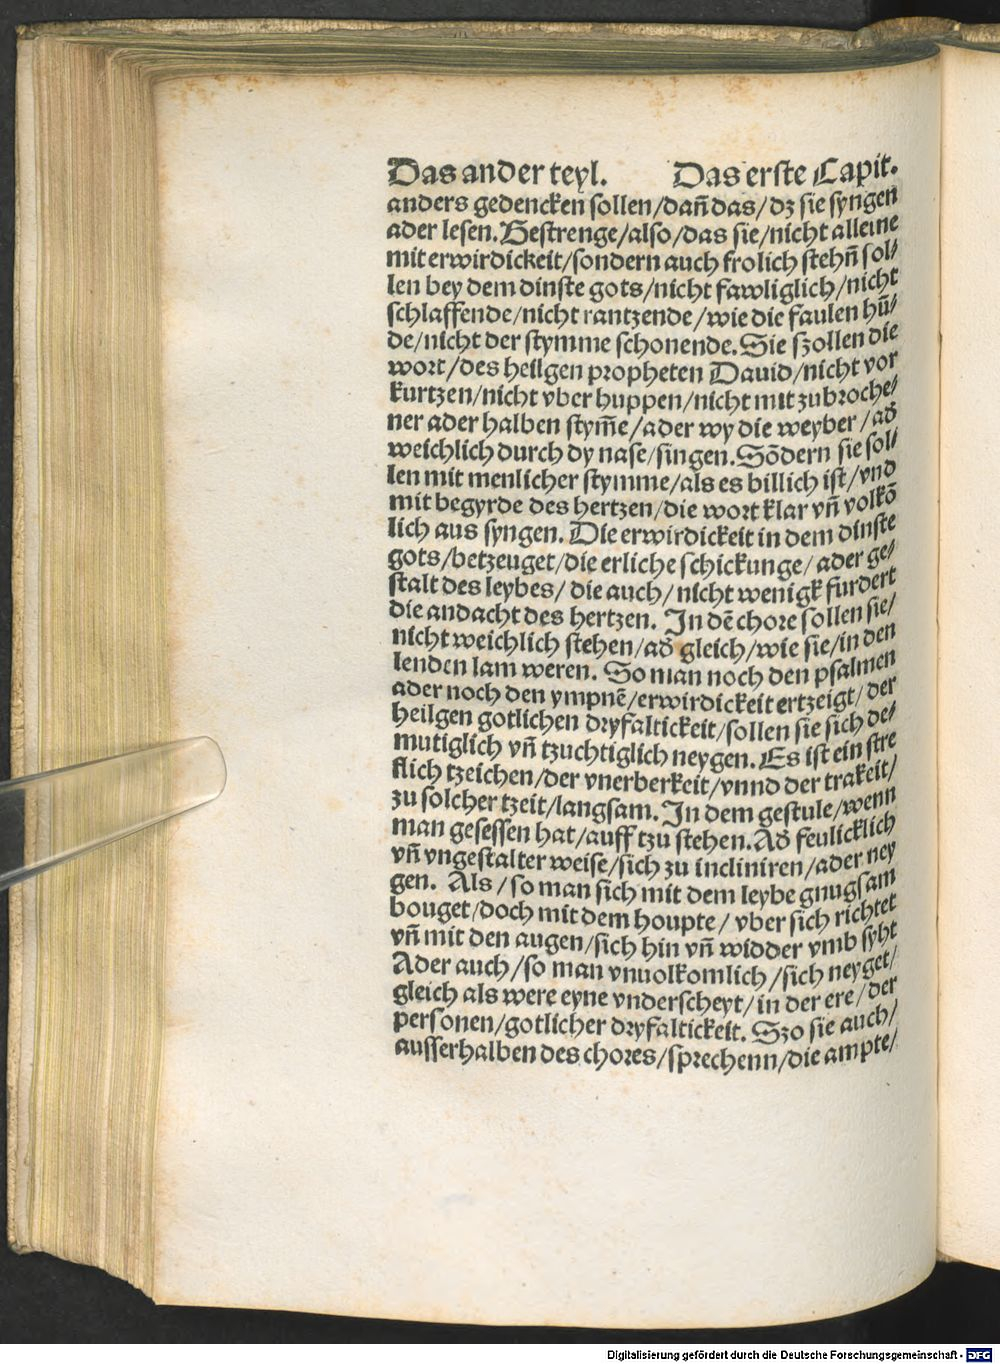 Das ander teyl. Das erste Capit.
anders gedencken sollen/dañ das/ dz sie syngen
ader lesen. Gestrenge/also/das sie/nicht alleine
mit erwirdickeit/sondern auch frolich stehñ sol⸗
len bey dem dinste gots/nicht fawliglich/nicht
schlaffende/nicht rantzende/wie die faulen hũ⸗
de/nicht der stymme schonende. Sie szollen die
wort/des heilgen propheten Dauid/nicht vor
kurtzen/nicht vber huppen/nicht mit zubroche⸗
ner ader halben stym̃e/ader wy die weyber/ad̕
weichlich durch dy nase/singen. Sõdern sie sol⸗
len mit menlicher stymme/als es billich ist/vnd
mit begyrde des hertzen/die wort klar vñ volkõ
lich aus syngen. Die erwirdickeit in dem dinste
gots/betzeuget/die erliche schickunge/ ader ge⸗
stalt des leybes/ die auch/ nicht wenigk furdert
die andacht des hertzen. In dẽ chore sollen sie/
nicht weichlich stehen/ad̕ gleich/wie sie/in den
lenden lam weren. So man noch den psalmen
ader noch den ympnẽ/erwirdickeit ertzeigt/ der
heilgen gotlichen dryfaltickeit/sollen sie sich de⸗
mutiglich vñ tzuchtiglich neygen. Es ist ein stre
flich tzeichen/der vnerberkeit/vnnd der trakeit/
zu solcher tzeit/langsam. In dem gestule/wenn
man gesessen hat/auff tzu stehen. Ad̕ feulicklich
vñ vngestalter weise/sich zu incliniren/ader ney
gen. Als/ so man sich mit dem leybe gnugsam
bouget/doch mit dem houpte/ vber sich richtet
vñ mit den augen/sich hin vñ widder vmb syht
Ader auch/so man vnuolkomlich/sich neyget/
gleich als were eyne vnderscheyt/in der ere/der
personen/gotlicher dryfaltickeit. Szo sie auch/
ausserhalben des chores/sprechenn/die ampte/
Digitalisierung gefördert durch die Deutsche Forschungsgemeinschaft - DFG